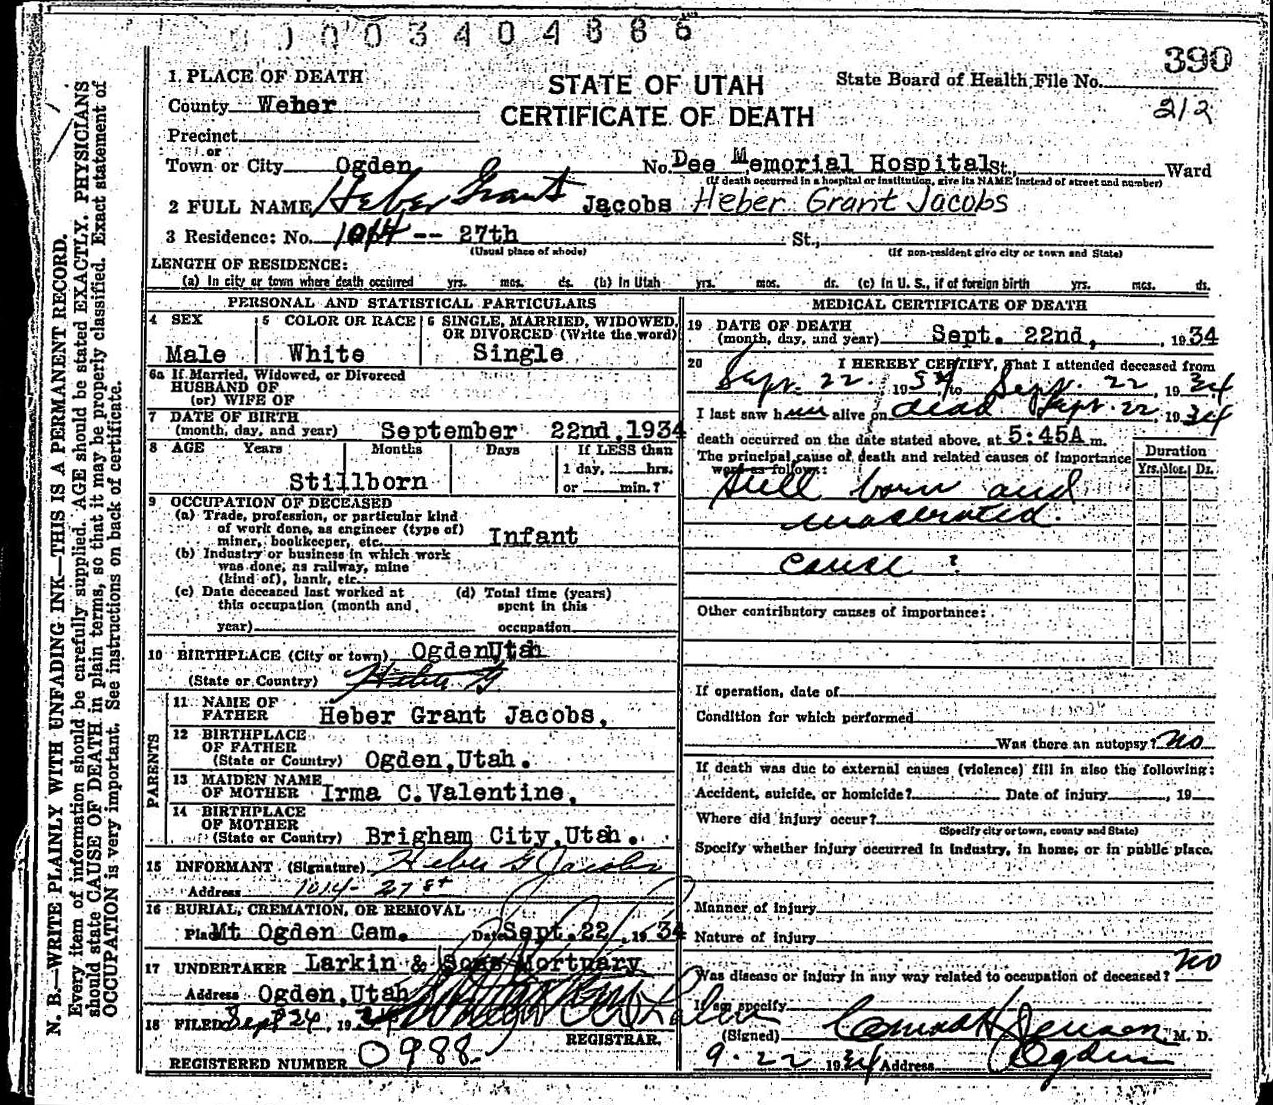 0003404886
390
1. PLACE OF DEATH
STATE OF UTAH
State Board of Health File No.
County Weber
CERTIFICATE OF DEATH
212
Precinct
or
Town or City Ogden No. Dee Memorial Hospital St., Ward
(If death occurred in a hospital or institution, give its NAME instead of street and number)
2 FULL NAME Heber Grant Jacobs Heber Grant Jacobs
3 Residence: No. 1014 -- 27th St.,
(Usual place of abode) (If non-resident give city or town and State)
LENGTH OF RESIDENCE:
(a) In city or town where death occurred yrs. mos. ds. (b) In Utah yrs. mos. ds. (c) In U. S., if of foreign birth yrs. mos. ds.
PERSONAL AND STATISTICAL PARTICULARS
4 SEX
Male
5 COLOR OR RACE
White
6 SINGLE, MARRIED, WIDOWED,
OR DIVORCED (Write the word)
Single
6a If Married, Widowed, or Divorced
HUSBAND OF
(or) WIFE OF
7 DATE OF BIRTH
(month, day, and year) September 22nd, 1934
8 AGE Years Months Days If LESS than
1 day, hrs.
Stillborn or min.?
9 OCCUPATION OF DECEASED
(a) Trade, profession, or particular kind
of work done, as engineer (type of)
miner, bookkeeper, etc. Infant
(b) Industry or business in which work
was done, as railway, mine
(kind of), bank, etc.
(c) Date deceased last worked at
this occupation (month and
year)
(d) Total time (years)
spent in this
occupation
10 BIRTHPLACE (City or town) Ogden Utah
(State or Country) Heber G
PARENTS
11 NAME OF
FATHER Heber Grant Jacobs,
12 BIRTHPLACE
OF FATHER
(State or Country) Ogden, Utah.
13 MAIDEN NAME
OF MOTHER Irma C. Valentine,
14 BIRTHPLACE
OF MOTHER
(State or Country) Brigham City, Utah.
15 INFORMANT (Signature) Heber G Jacobs
Address 1014- 27 st
16 BURIAL, CREMATION, OR REMOVAL
Place Mt Ogden Cem. Date Sept. 22, 1934
17 UNDERTAKER Larkin & Sons Mortuary
Address Ogden, Utah
18 FILED Sept 24, 1934
REGISTRAR.
REGISTERED NUMBER 0988
MEDICAL CERTIFICATE OF DEATH
19 DATE OF DEATH
(month, day, and year) Sept. 22nd, 1934
20 I HEREBY CERTIFY, That I attended deceased from
Sept. 22, 1934 to Sept. 22, 1934
I last saw h alive on dead Sept. 22, 1934
death occurred on the date stated above, at 5:45A m.
The principal cause of death and related causes of importance
were as follows:
Duration
Yrs. Mos. Ds.
Still born and
macerated.
cause ?
Other contributory causes of importance:
If operation, date of
Condition for which performed
Was there an autopsy? no
If death was due to external causes (violence) fill in also the following:
Accident, suicide, or homicide? Date of injury , 19
Where did injury occur?
(Specify city or town, county and State)
Specify whether injury occurred in industry, in home, or in public place.
Manner of injury
Nature of injury
Was disease or injury in any way related to occupation of deceased? no
If so specify
(Signed) Conrad H Jenson M. D.
9-22 1934 Address Ogden
N. B.—WRITE PLAINLY WITH UNFADING INK—THIS IS A PERMANENT RECORD.
Every item of information should be carefully supplied. AGE should be stated EXACTLY. PHYSICIANS
should state CAUSE OF DEATH in plain terms, so that it may be properly classified. Exact statement of
OCCUPATION is very important. See instructions on back of certificate.